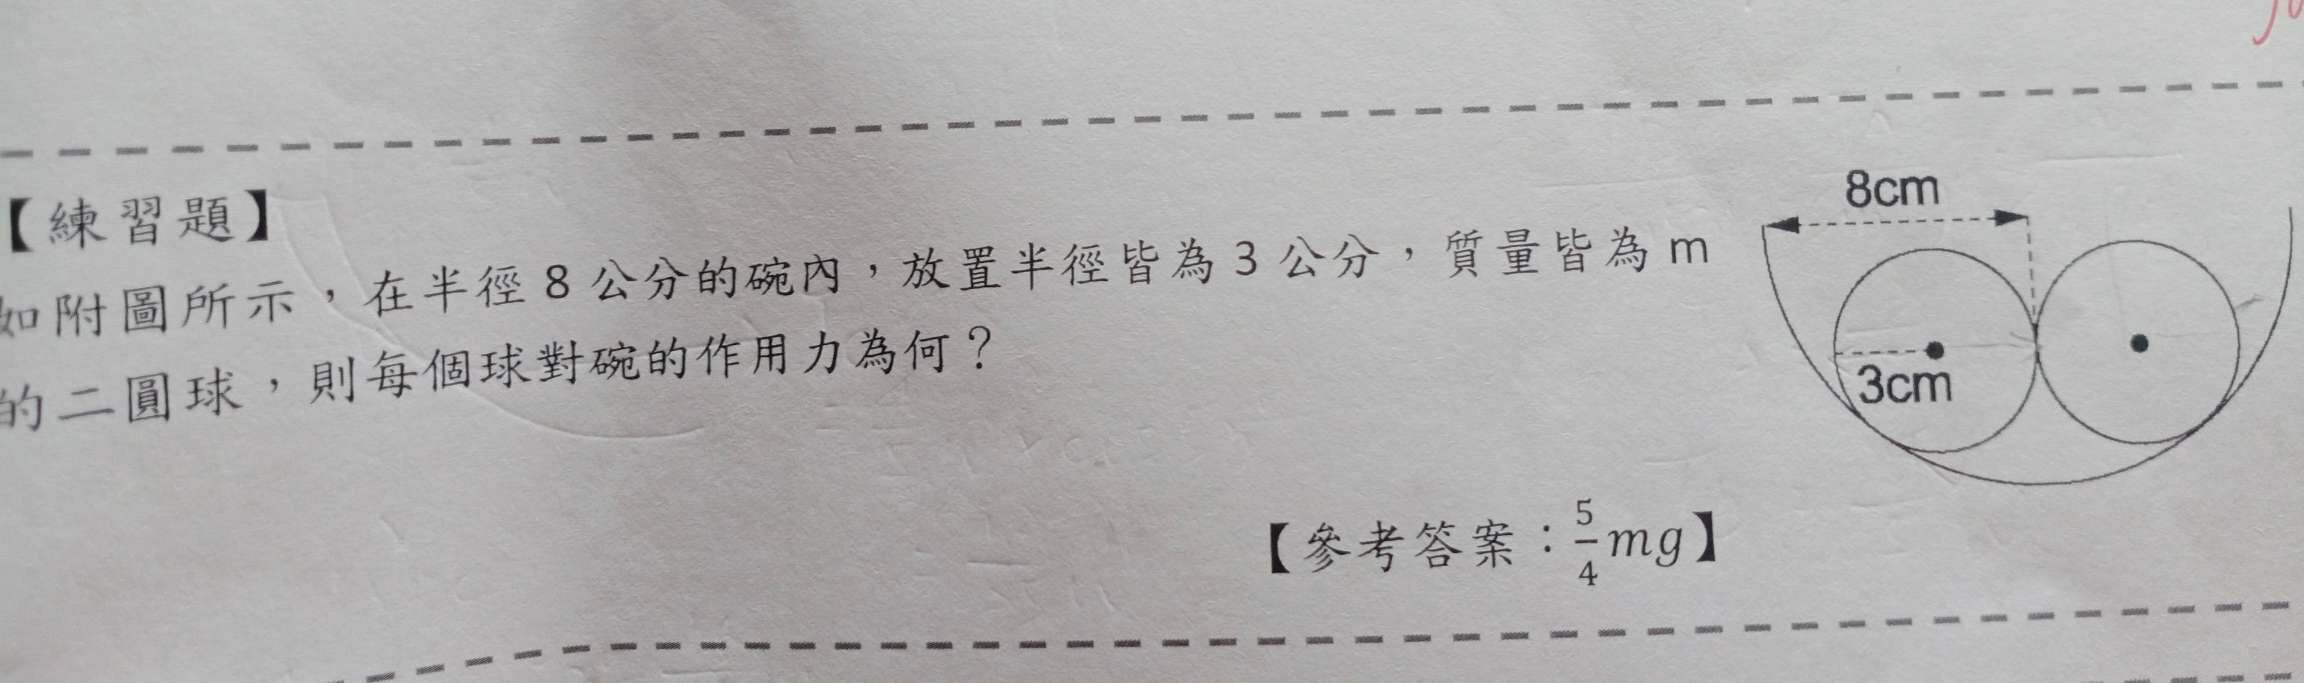 【練習題】
如附圖所示，在半徑 8 公分的碗內，放置半徑皆為 3 公分，質量皆為 m
的二圓球，則每個球對碗的作用力為何？
8cm
3cm
【參考答案：5/4 mg】